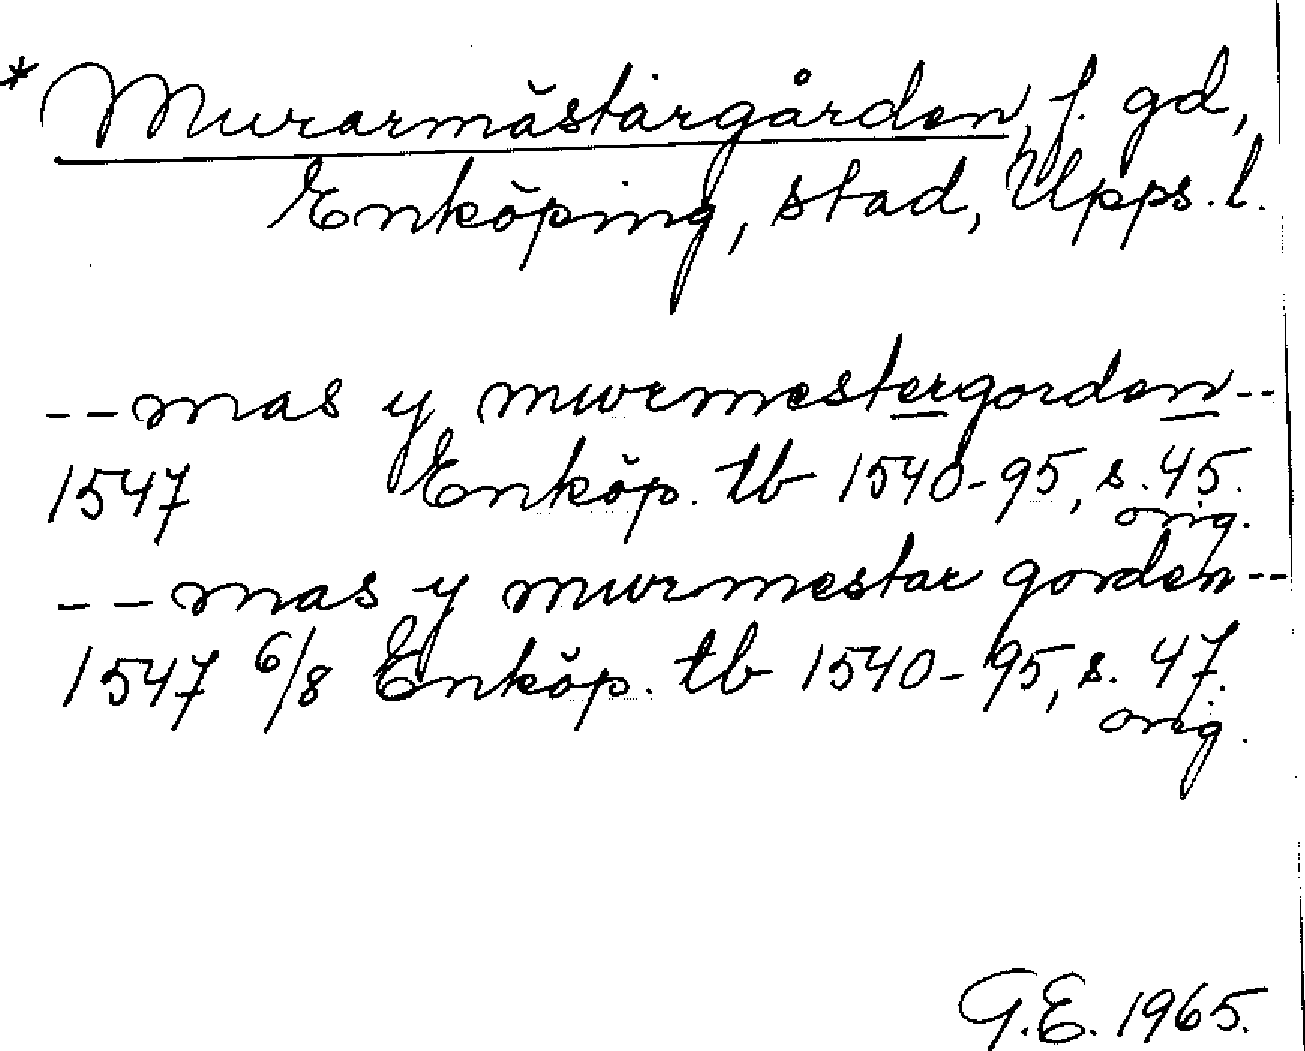 * Murarmästargården, f. gd,
Enköping, stad, Upps. l.
--mas y murmestergorden--
1547 Enköp. tb 1540-95, s. 45.
orig.
--mas y murmestar gorden--
1547 6/8 Enköp. tb 1540-95, s. 47.
orig.
G.E. 1965.